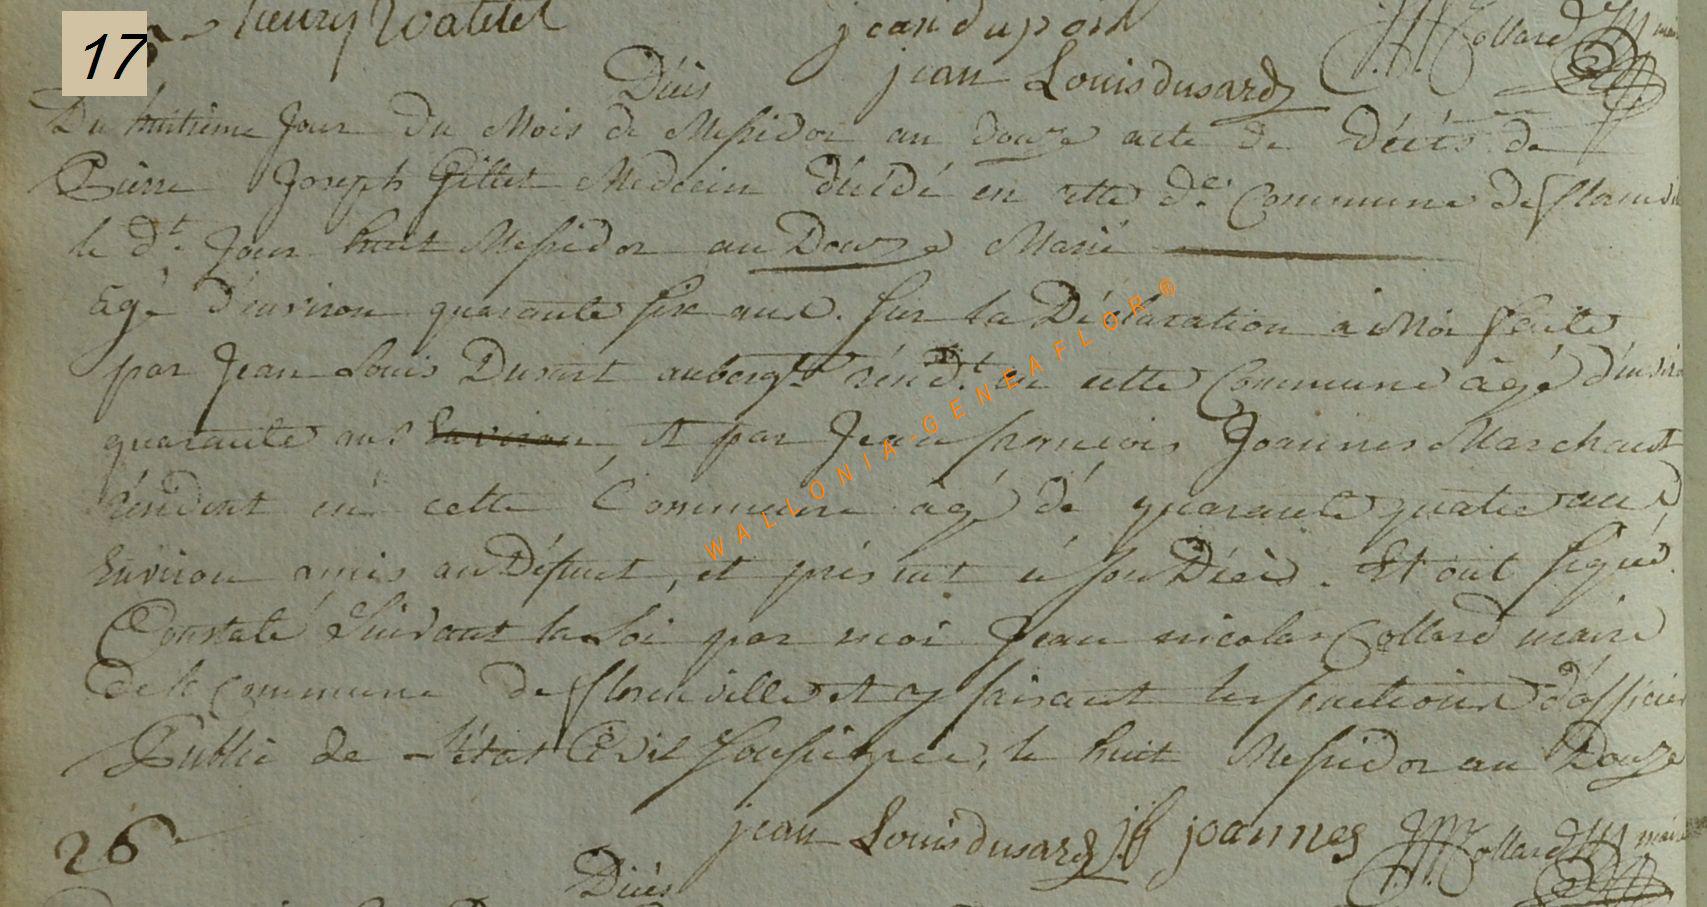 17
henry Watelet jean dupont JN Collard M maire
Décès jean Louis dusard
Du huitieme Jour Du Mois de Messidor an douze acte de Décès de
Pierre Joseph Gillet Medecin décédé en cette de. Commune de florenvil
le dt. Jour huit Messidor an Douze Marié
agé d'environ quarante six ans. sur la Déclaration à Moi faite
par Jean Louis Dusart aubergte résidt. en cette Commune agé d'enviro
quarante ans Environ, et par Jean francois Joannes Marchant
résident en cette Commune agé dé quarante quatre ans
Environ amis au Défunt, et présent à son Décès. Et ont signé.
Constaté Suivant la Loi par moi Jean nicolas Collard maire
de la Commune de florenville et y faisant les fonctions d'officier
Public de l'état Civil soussignée, le huit Messidor an Douze
jean Louis dusard jf joannes JN Collard M maire
26
Décès
WALLONIA-GENEAFLOR®